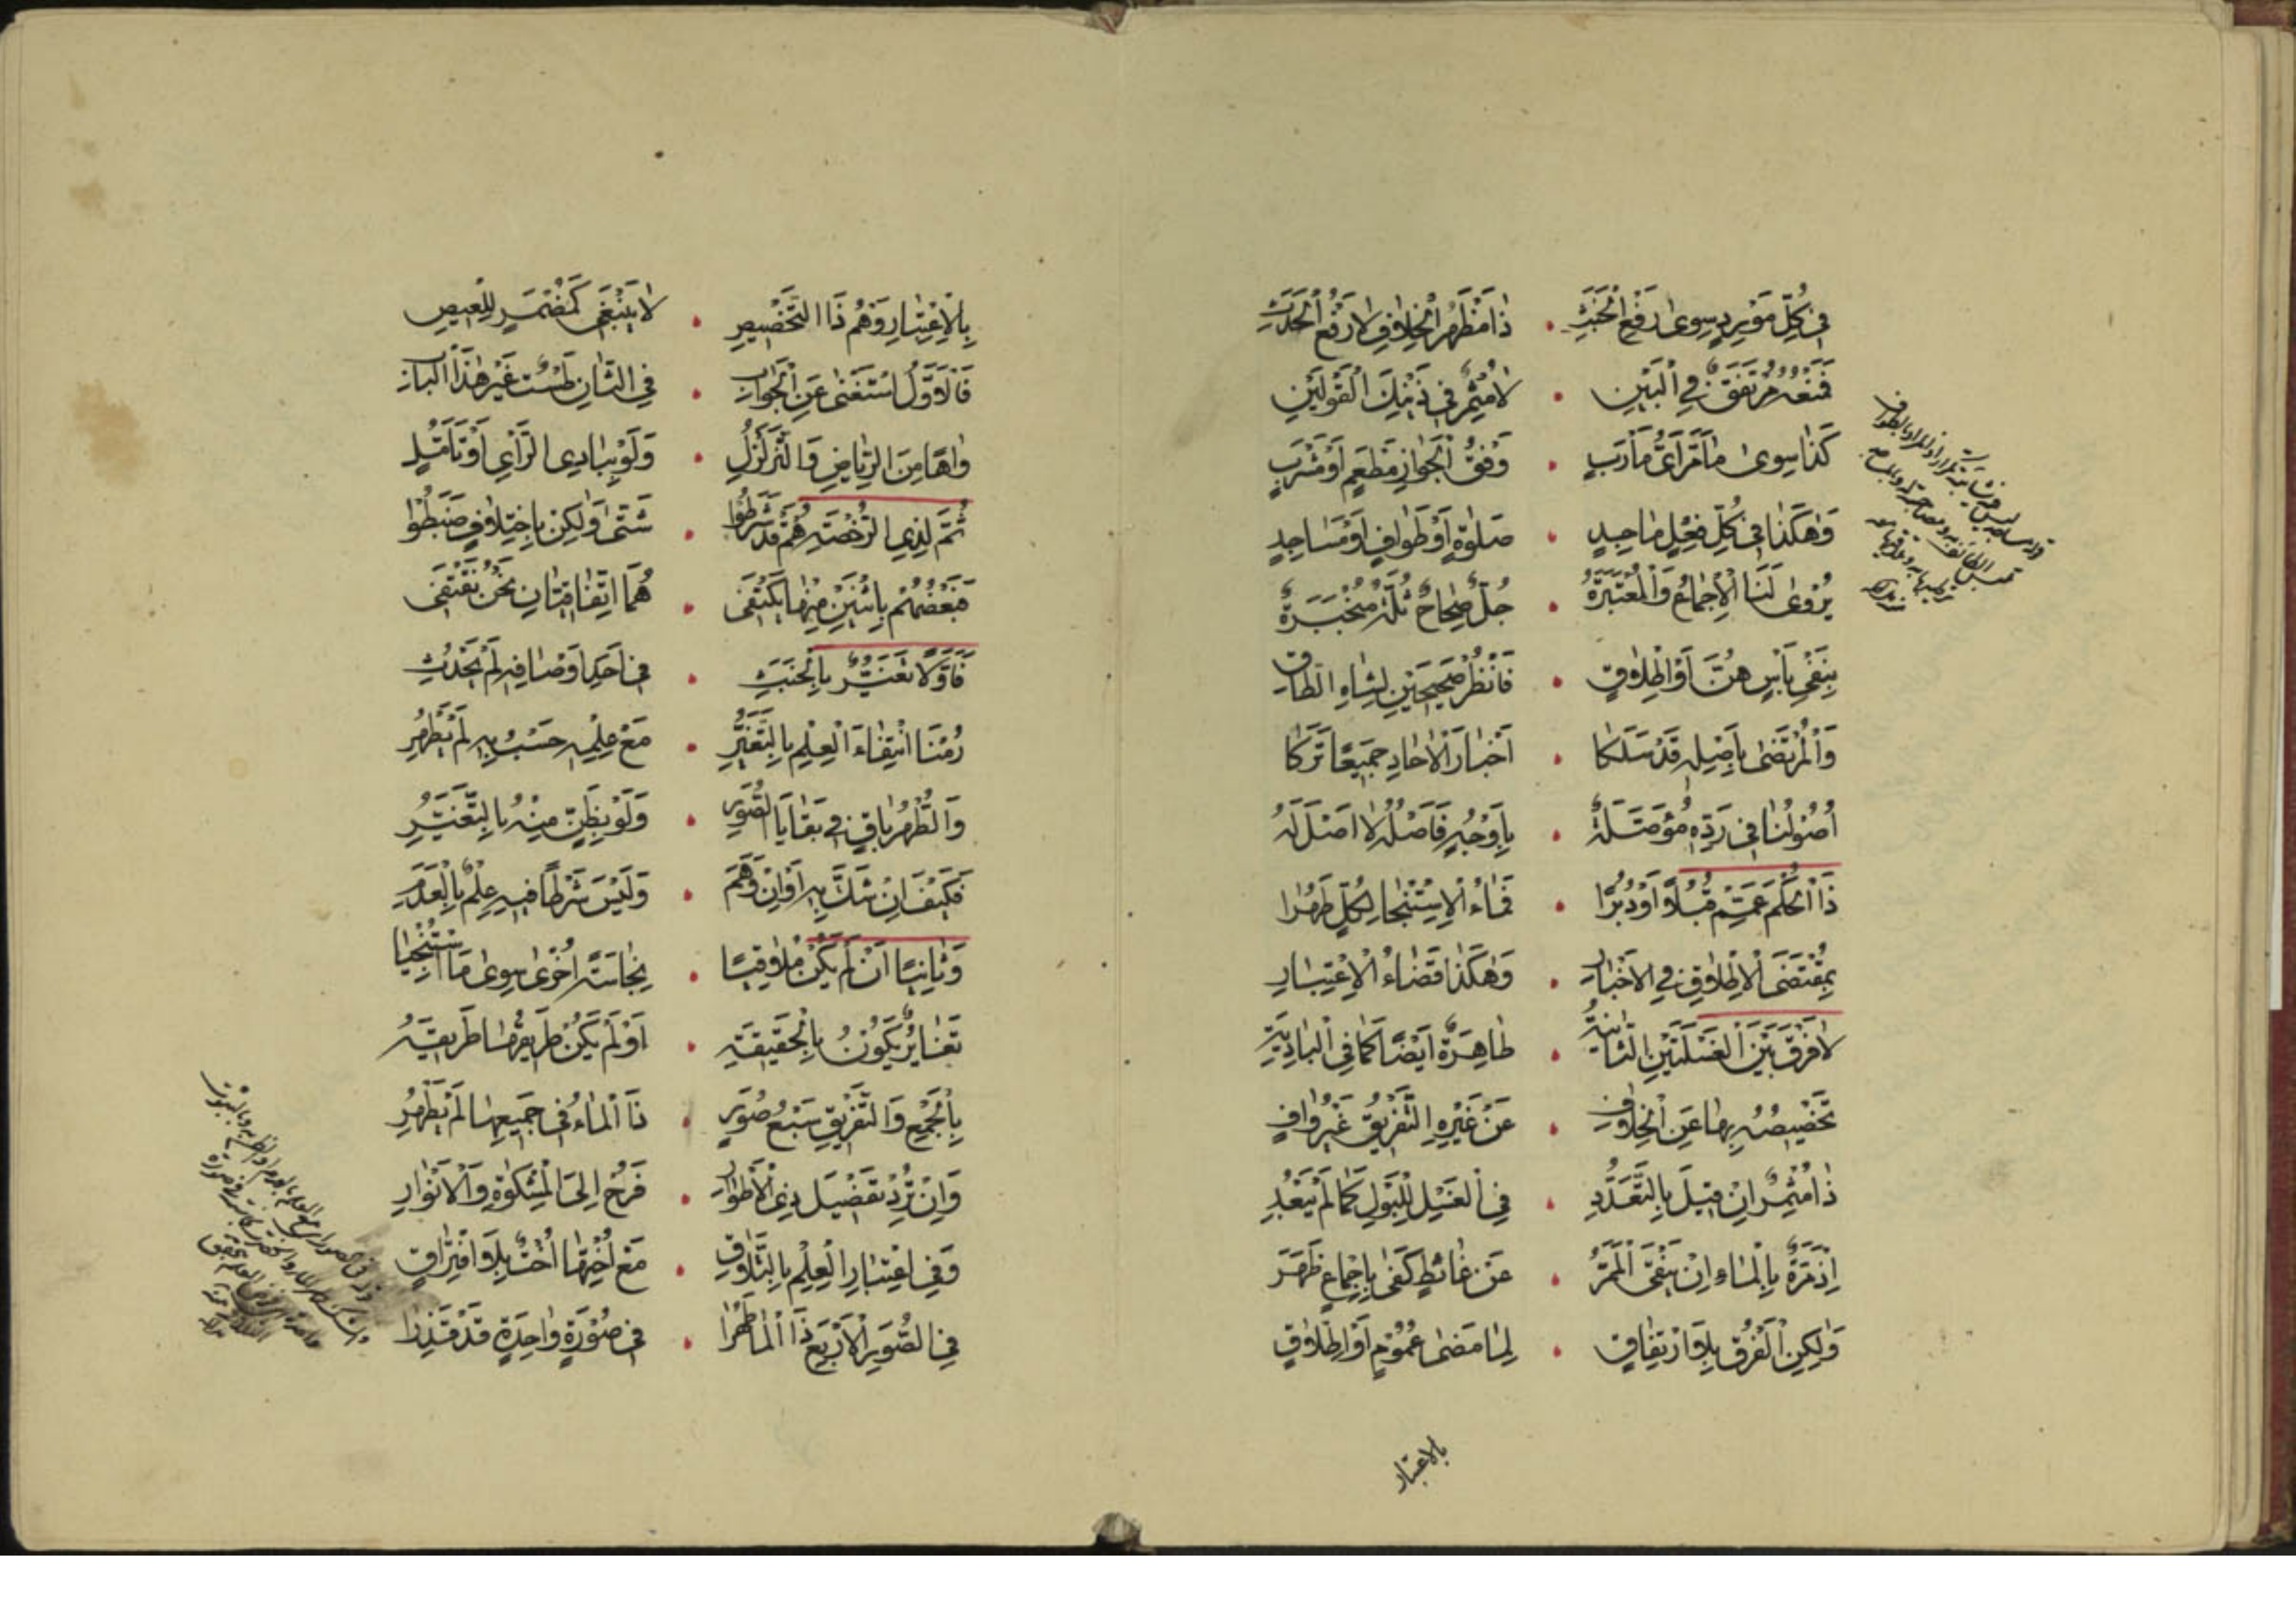 فِي كُلِّ مَوْرِدٍ سِوَى رَفْعِ الْخَبَثِ . ذَا مَظْهَرُ الْخِلَافِ لَا رَفْعُ الْحَدَثِ
فَمَنْعُهُ مُتَّفَقٌ فِي الْبَيْنِ . لَا مُثْمِرٌ فِي ذَيْنِكَ الْقَوْلَيْنِ
كَذَا سِوَى مَا مَرَّ أَيُّ مَأْرَبٍ . وَفْقُ الْجَوَازِ مَطْعَمٍ أَوْ مَشْرَبٍ
وَهَكَذَا فِي كُلِّ فِعْلٍ مَا حِدٍ . صَلَوٰةٍ أَوْ طَوَافٍ أَوْ مَسَاجِدٍ
يُرْوَى لَنَا الْإِجْمَاعُ وَالْمُعْتَبَرَةُ . جُلٌّ صِحَاحٌ ثُلَّةٌ مُنْجَبَرَةٌ
بِنَفْيِ بَأْسٍ هُنَّ أَوْ إِطْلَاقٍ . فَانْظُرْ صَحِيحَيْنِ لِشَاهِ الطَّاقِ
وَالْمُرْتَضَى بِأَصْلِهِ قَدْ سَلَكَا . أَخْبَارَ الْآحَادِ جَمِيعًا تَرَكَا
أُصُولُنَا فِي رَدِّهِ مُؤَصَّلَةٌ . بِأَوْجُهٍ فَأَصْلُهُ لَا أَصْلَ لَهُ
ذَا الْحُكْمَ عَمِّمْ قُبُلًا أَوْ دُبُرًا . فَمَاءُ الْإِسْتِنْجَا لِكُلٍّ طَهُرَا
بِمُقْتَضَى الْإِطْلَاقِ فِي الْأَخْبَارِ . وَهَكَذَا قَضَاءُ الْإِعْتِبَارِ
لَا فَرْقَ بَيْنَ الْغَسْلَتَيْنِ الثَّانِيَةُ . طَاهِرَةٌ أَيْضًا كَمَا فِي الْبَادِيَةِ
تَخْصِيصُهُ بِهَا عَنِ الْخِلَافِ . عَنْ غَيْرِهِ التَّفْرِيقُ غَيْرُ وَافٍ
ذَا مُثْمِرٌ إِنْ قِيلَ بِالتَّعَدُّدِ . فِي الْغَسْلِ لِلْبَوْلِ كَمَا لَمْ يَبْعُدِ
إِذْ مَرَّةٌ بِالْمَاءِ إِنْ يَنْقَى الْمَمَرُّ . عَنْ غَائِطٍ كَفَى بِإِجْمَاعٍ ظَهَرَ
وَلَكِنِ الْفَرْقُ بِلَا ارْتِفَاقٍ . لِمَا مَضَى عُمُومٍ أَوْ إِطْلَاقٍ
بالاعتبار
بِالْإِعْتِبَارِ وَهْمُ ذَا التَّخْصِيصِ . لَا يَنْبَغِي كَمُضْمَرٍ لِلْعِيصِ
فَالْأَوَّلُ اسْتَغْنَى عَنِ الْجَوَابِ . فِي الثَّانِ طَسْتٌ غَيْرُ هَذَا الْبَابِ
وَاهًا مِنَ الرِّيَاضِ وَالتَّزَلْزُلِ . وَلَوْ بِبَادِي الرَّأْيِ أَوْ تَأَمُّلٍ
ثُمَّ لِذِي الرُّخْصَةِ هُمْ قَدْ شَرَطُوا . شَتَّى وَلَكِنْ بِاخْتِلَافٍ ضَبَطُوا
فَبَعْضُهُمْ بِاثْنَيْنِ مِنْهَا يَكْتَفِي . هُمَا اتِّفَاقِيَّانِ نَحْنُ نَقْتَفِي
فَأَوَّلًا تَغَيُّرٌ بِالْخَبَثِ . فِي أَحَدِ أَوْصَافِهِ لَمْ يَحْدُثِ
رُمْنَا انْتِفَاءَ الْعِلْمِ بِالتَّغَيُّرِ . مَعْ عِلْمِهِ حَسْبُ بِهِ لَمْ يَطْهُرِ
وَالطُّهْرُ بَاقٍ فِي بَقَايَا الصُّوَرِ . وَلَوْ بِظَنٍّ مِنْهُ بِالتَّغَيُّرِ
فَكَيْفَ إِنْ شَكَّ بِهِ أَوْ إِنْ وَهَمَ . وَلَيْسَ شَرْطًا فِيهِ عِلْمٌ بِالْعَدَمِ
وَثَانِيًا أَنْ لَمْ يَكُنْ مُلَاقِيًا . نَجَاسَةً أُخْرَى سِوَى مَا اسْتُنْجِيَا
تَغَايُرٌ يَكُونُ بِالْحَقِيقَةِ . أَوْ لَمْ يَكُنْ طَرِيقُهَا طَرِيقَهُ
بِالْجَمْعِ وَالتَّفْرِيقِ سَبْعُ صُوَرٍ . ذَا الْمَاءُ فِي جَمِيعِهَا لَمْ يَطْهُرِ
وَإِنْ تُرِدْ تَفْضِيلَ ذِي الْأَطْوَارِ . فَرُحْ إِلَى الْمِشْكَوٰةِ وَالْأَنْوَارِ
وَفِي اعْتِبَارِ الْعِلْمِ بِالتَّلَاقِ . مَعْ أُخْتِهَا أُخْتٌ بِلَا افْتِرَاقٍ
فِي الصُّوَرِ الْأَرْبَعِ ذَا الْمَا طَهُرَا . فِي صُورَةٍ وَاحِدَةٍ قَدْ قَذِرَا